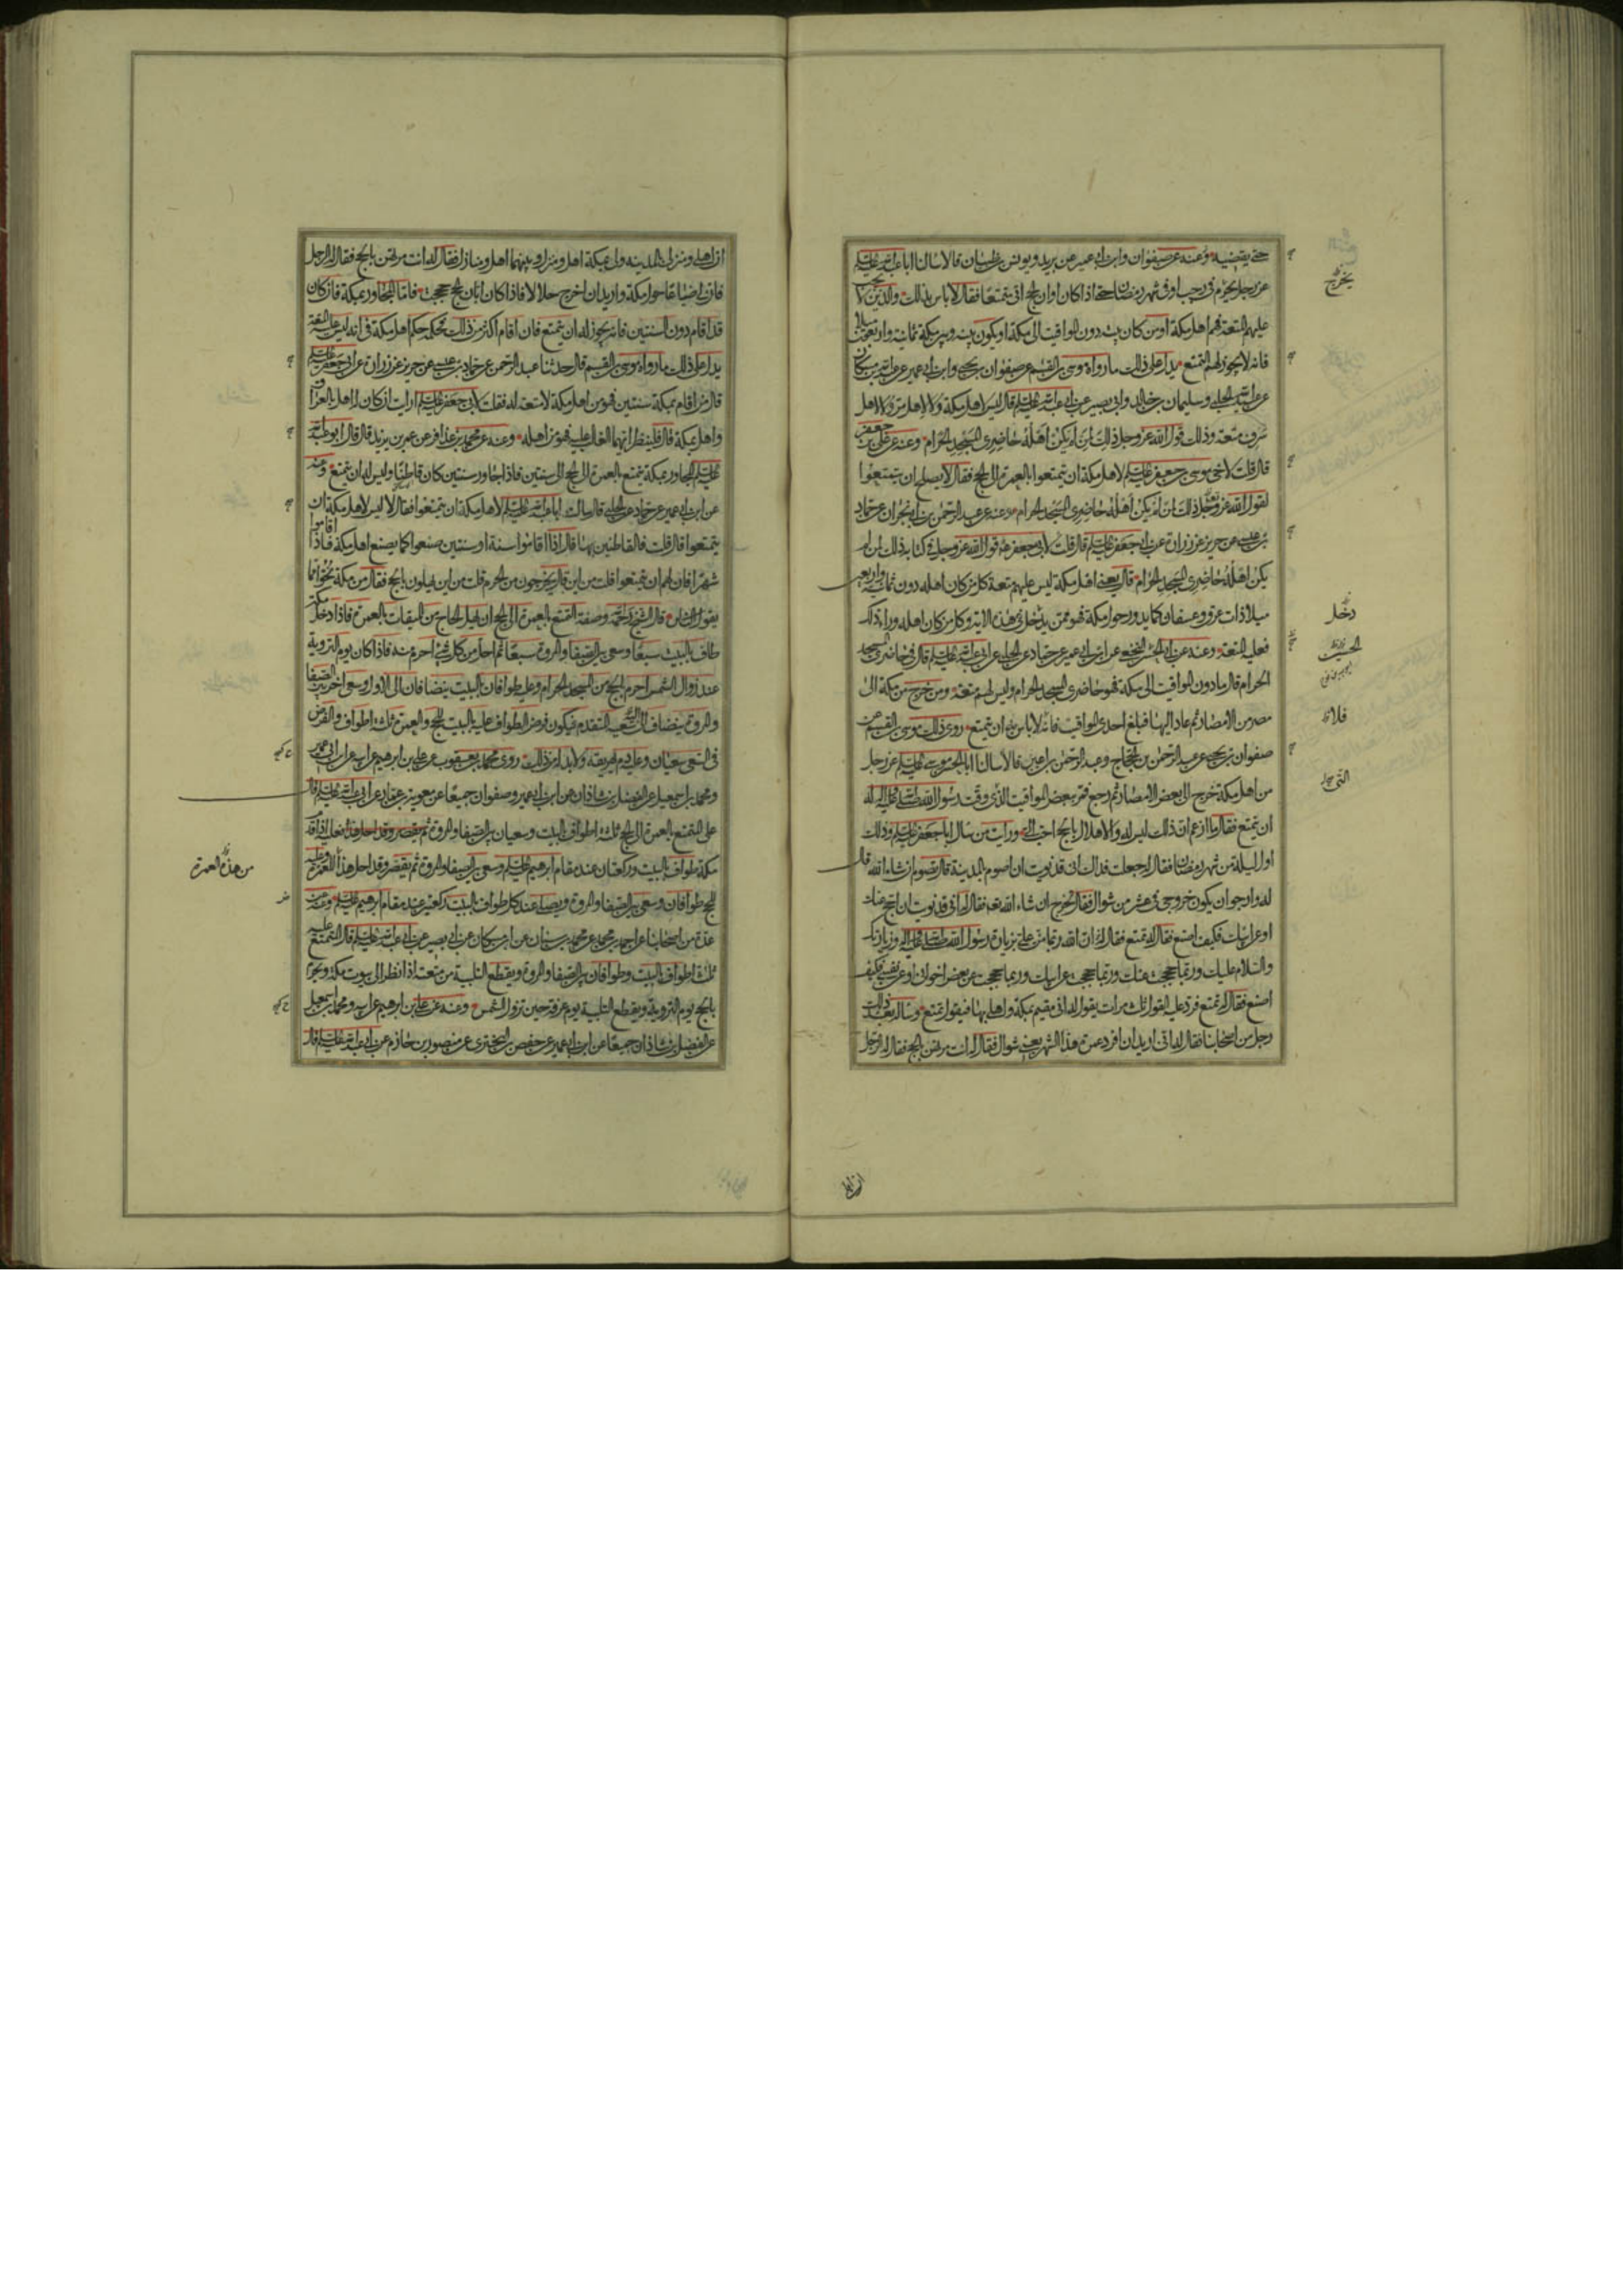 حتى يقضيه وعنه عن صفوان وابن ابى عمير عن بريد ويونس بن ظبيان قالا سالنا ابا عبد الله عليه السلم
عن رجل يحرم فى رجب او فى شهر رمضان حتى اذا كان اوان الحج اتى متمتعا فقال لا باس بذلك والذين لا يجب
عليهم المتعة فهم اهل مكة او من كان بيته دون المواقيت الى مكة او يكون بينه وبين مكة ثمانية واربعون ميلا
فانه لا يجوز لهم التمتع يدل على ذلك ما رواه موسى بن القسم عن صفوان بن يحيى وابن ابى عمير عن عبد الله بن مسكان
عن عبيد الله الحلبى وسليمان بن خالد وابى بصير عن ابى عبد الله عليه السلم قال ليس لاهل مكة ولا لاهل مر ولا لاهل
سرف متعة وذلك لقول الله عز وجل ذلك لمن لم يكن اهله حاضرى المسجد الحرام وعنه عن على بن جعفر
قال قلت لاخى موسى بن جعفر عليه السلم لاهل مكة ان يتمتعوا بالعمرة الى الحج فقال لا يصلح ان يتمتعوا
لقول الله عز وجل ذلك لمن لم يكن اهله حاضرى المسجد الحرام وعنه عن عبد الرحمن بن ابى نجران عن حماد
بن عيسى عن حريز عن زرارة عن ابى جعفر عليه السلم قال قلت لابى جعفر قول الله عز وجل فى كتابه ذلك لمن لم
يكن اهله حاضرى المسجد الحرام قال يعنى اهل مكة ليس عليهم متعة كل من كان اهله دون ثمانية واربعين
ميلا ذات عرق وعسفان كما يدور حول مكة فهو ممن يدخل فى هذه الاية وكل من كان اهله وراء ذلك
فعليه المتعة وعنه عن ابى الحسن النخعى عن ابن ابى عمير عن حماد عن الحلبى عن ابى عبد الله عليه السلم قال فى حاضرى المسجد
الحرام قال ما دون المواقيت الى مكة فهو حاضرى المسجد الحرام وليس لهم متعة ومن خرج من مكة الى
مصر من الامصار ثم عاد اليها فبلغ احدى المواقيت فانه لا باس به ان يتمتع روى ذلك موسى بن القسم عن
صفوان بن يحيى عن عبد الرحمن بن الحجاج وعبد الرحمن بن اعين قالا سالنا ابا الحسن موسى عليه السلم عن رجل
من اهل مكة خرج الى بعض الامصار ثم رجع فمر ببعض المواقيت الذى وقت رسول الله صلى الله عليه وآله له
ان يتمتع فقال ما ازعم ان ذلك ليس له والاهلال بالحج احب الى ورايت من سال ابا جعفر عليه السلم وذلك
اول ليلة من شهر رمضان فقال له جعلت فداك انى قد نويت ان اصوم بالمدينة قال تصوم ان شاء الله قال
له وارجو ان يكون خروجى فى عشر من شوال فقال تخرج ان شاء الله تعم فقال له انى قد نويت ان احج عنك
او عن ابيك فكيف اصنع فقال له تمتع فقال له ان الله ربما من على بزيارة رسول الله صلى الله عليه وآله وزيارتك
والسلام عليك وربما حججت عنك وربما حججت عن ابيك وربما حججت عن بعض اخوانى او عن نفسى فكيف
اصنع فقال له تمتع فرد عليه القول ثلث مرات يقول له انى مقيم بمكة واهلى بها فيقول تمتع وساله بعد ذلك
رجل من اصحابنا فقال له انى اريد ان افرد عمرة هذا الشهر يعنى شوال فقال له انت مرتهن بالحج فقال له الرجل
يخرج
دخل
فلانه
ان اهلى
ان اهلى ومنزلى بالمدينة ولى بمكة اهل ومنزل وبينهما اهل ومنازل فقال له انت مرتهن بالحج فقال له الرجل
فان لى ضياعا حول مكة واريد ان اخرج حلالا فاذا كان ابان الحج حججت فاما المجاور بمكة فان كان
قد اقام دون السنتين فانه يجوز له ان يتمتع فان اقام اكثر من ذلك فحكمه حكم اهل مكة فى انه ليس عليه المتعة
يدل على ذلك ما رواه موسى بن القسم قال حدثنا عبد الرحمن عن حماد بن عيسى عن حريز عن زرارة عن ابى جعفر عليه السلم
قال من اقام بمكة سنتين فهو من اهل مكة لا متعة له فقلت لابى جعفر عليه السلم ارايت ان كان له اهل بالعراق
واهل بمكة قال فلينظر ايهما الغالب عليه فهو من اهله وعنه عن محمد بن عذافر عن عمر بن يزيد قال قال ابو عبد الله
عليه السلم المجاور بمكة يتمتع بالعمرة الى الحج الى سنتين فاذا جاور سنتين كان قاطنا وليس له ان يتمتع وعنه
عن ابن ابى عمير عن حماد عن الحلبى قال سالت ابا عبد الله عليه السلم لاهل مكة ان يتمتعوا فقال لا ليس لاهل مكة ان
يتمتعوا قال قلت فالقاطنين بها قال اذا اقاموا سنة او سنتين صنعوا كما يصنع اهل مكة فاذا اقاموا
شهرا فان لهم ان يتمتعوا قلت من اين قال يخرجون من الحرم قلت من اين يهلون بالحج فقال من مكة نحوا مما
يقول الناس قال الشيخ رحمه الله وصفة التمتع بالعمرة الى الحج ان يهل الحاج من الميقات بالعمرة فاذا دخل مكة
طاف بالبيت سبعا وسعى بين الصفا والمروة سبعا ثم احل من كل شئ احرم منه فاذا كان يوم التروية
عند زوال الشمس احرم بالحج من المسجد الحرام وعليه طوافان بالبيت ينضافان الى الاول وسعى اخر بين الصفا
والمروة ينضاف الى سعيه المتقدم فيكون فرض الطواف عليه بالبيت للحج والعمرة ثلثة اطواف والفرض
فى السعى سعيان وعليه دم يهريقه ولا بد له من ذلك روى محمد بن يعقوب عن على بن ابرهيم عن ابيه عن ابن ابى عمير
ومحمد بن اسمعيل عن الفضل بن شاذان عن ابن ابى عمير وصفوان جميعا عن معوية بن عمار عن ابى عبد الله عليه السلم قال
على المتمتع بالعمرة الى الحج ثلثة اطواف بالبيت وسعيان بين الصفا والمروة فعليه اذا قدم
مكة طواف بالبيت وركعتان عند مقام ابرهيم عليه السلم وسعى بين الصفا والمروة ثم يقصر وقد احل هذا للعمرة وعليه
للحج طوافان وسعى بين الصفا والمروة ويصلى عند كل طواف بالبيت ركعتين عند مقام ابرهيم عليه السلم وعنه عن
عدة من اصحابنا عن احمد بن محمد عن محمد بن سنان عن ابن مسكان عن ابى بصير عن ابى عبد الله عليه السلم قال المتمتع عليه
ثلث اطواف بالبيت وطوافان بين الصفا والمروة ويقطع التلبية من متعته اذا نظر الى بيوت مكة ويحرم
بالحج يوم التروية ويقطع التلبية يوم عرفة حين تزول الشمس وعنه عن على بن ابرهيم عن ابيه ومحمد بن اسمعيل
عن الفضل بن شاذان جميعا عن ابن ابى عمير عن حفص بن البخترى عن منصور بن حازم عن ابى عبد الله عليه السلم قال
من هذه العمرة